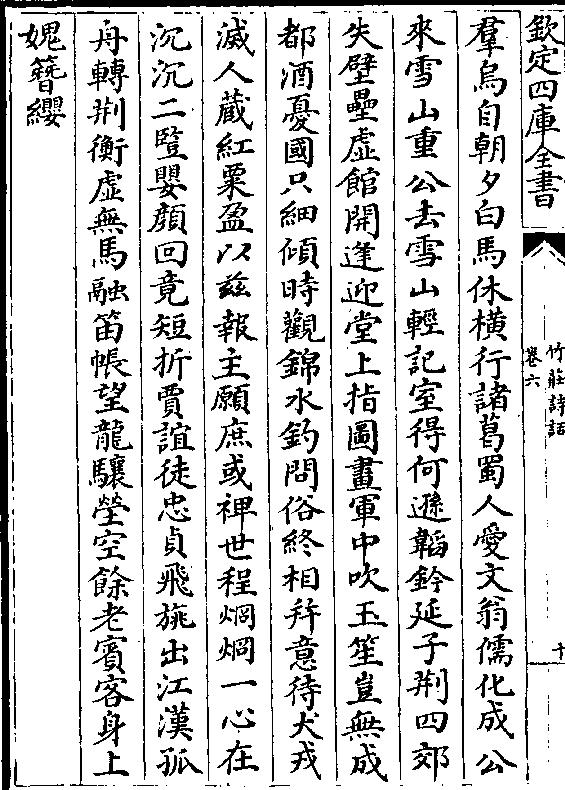 欽定四庫全書
竹莊詩話
卷六
十
羣烏自朝夕白馬休橫行諸葛蜀人愛文翁儒化成公
來雪山重公去雪山輕記室得何遜韜鈐延子荆四郊
失壁壘虛館開逢迎堂上指圖畫軍中吹玉笙豈無成
都酒憂國只細傾時觀錦水釣問俗終相幷意待犬戎
滅人藏紅粟盈以兹報主願庶或裨世程烱烱一心在
沉沉二豎嬰顔回竟短折賈誼徒忠貞飛旐出江漢孤
舟轉荆衡虛無馬融笛悵望龍驤塋空餘老賓客身上
媿簪纓